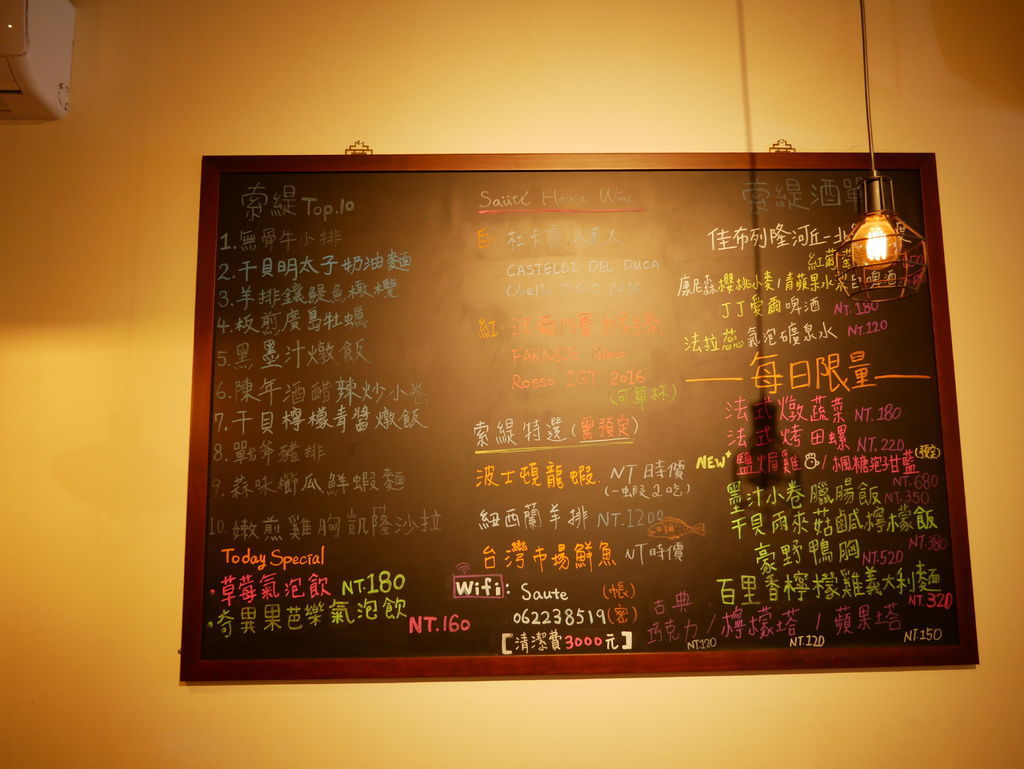 索緹 Top.10
1.無骨牛小排
2.干貝明太子奶油麵
3.羊排鑲鯷魚橄欖
4.板煎廣島牡蠣
5.黑墨汁燉飯
6.陳年酒醋辣炒小卷
7.干貝檸檬青醬燉飯
8.戰斧豬排
9.蒜味櫛瓜鮮蝦麵
10.嫩煎雞胸凱薩沙拉
Today Special
·草莓氣泡飲 NT.180
·奇異果芭樂氣泡飲 NT.160
Sauté House Wine
白:
CASTELLI DEL DUCA
2016
紅:
Rosso IGT 2016
(可單杯)
索緹特選(需預定)
波士頓龍蝦. NT時價
(一蝦2吃)
紐西蘭羊排 NT.1200
台灣市場鮮魚 NT時價
Wifi: Saute (帳)
062238519(密)
[清潔費3000元]
索緹酒單
佳布列隆河丘-北
紅葡萄
康尼森櫻桃小麥/青蘋果水梨 啤酒
JJ愛爾啤酒 NT.180
法拉蕊氣泡礦泉水 NT.120
每日限量
法式燉蔬菜 NT.180
法式烤田螺 NT.220
NEW 鹽焗雞/楓糖泡子甘藍 (預定)
NT.680
墨汁小卷臘腸飯 NT.350
干貝雨來菇鹹檸檬飯
NT.380
豪野鴨胸 NT.520
百里香檸檬雞義大利麵
NT.320
古典
巧克力/檸檬塔/蘋果塔
NT.120 NT.120 NT.150